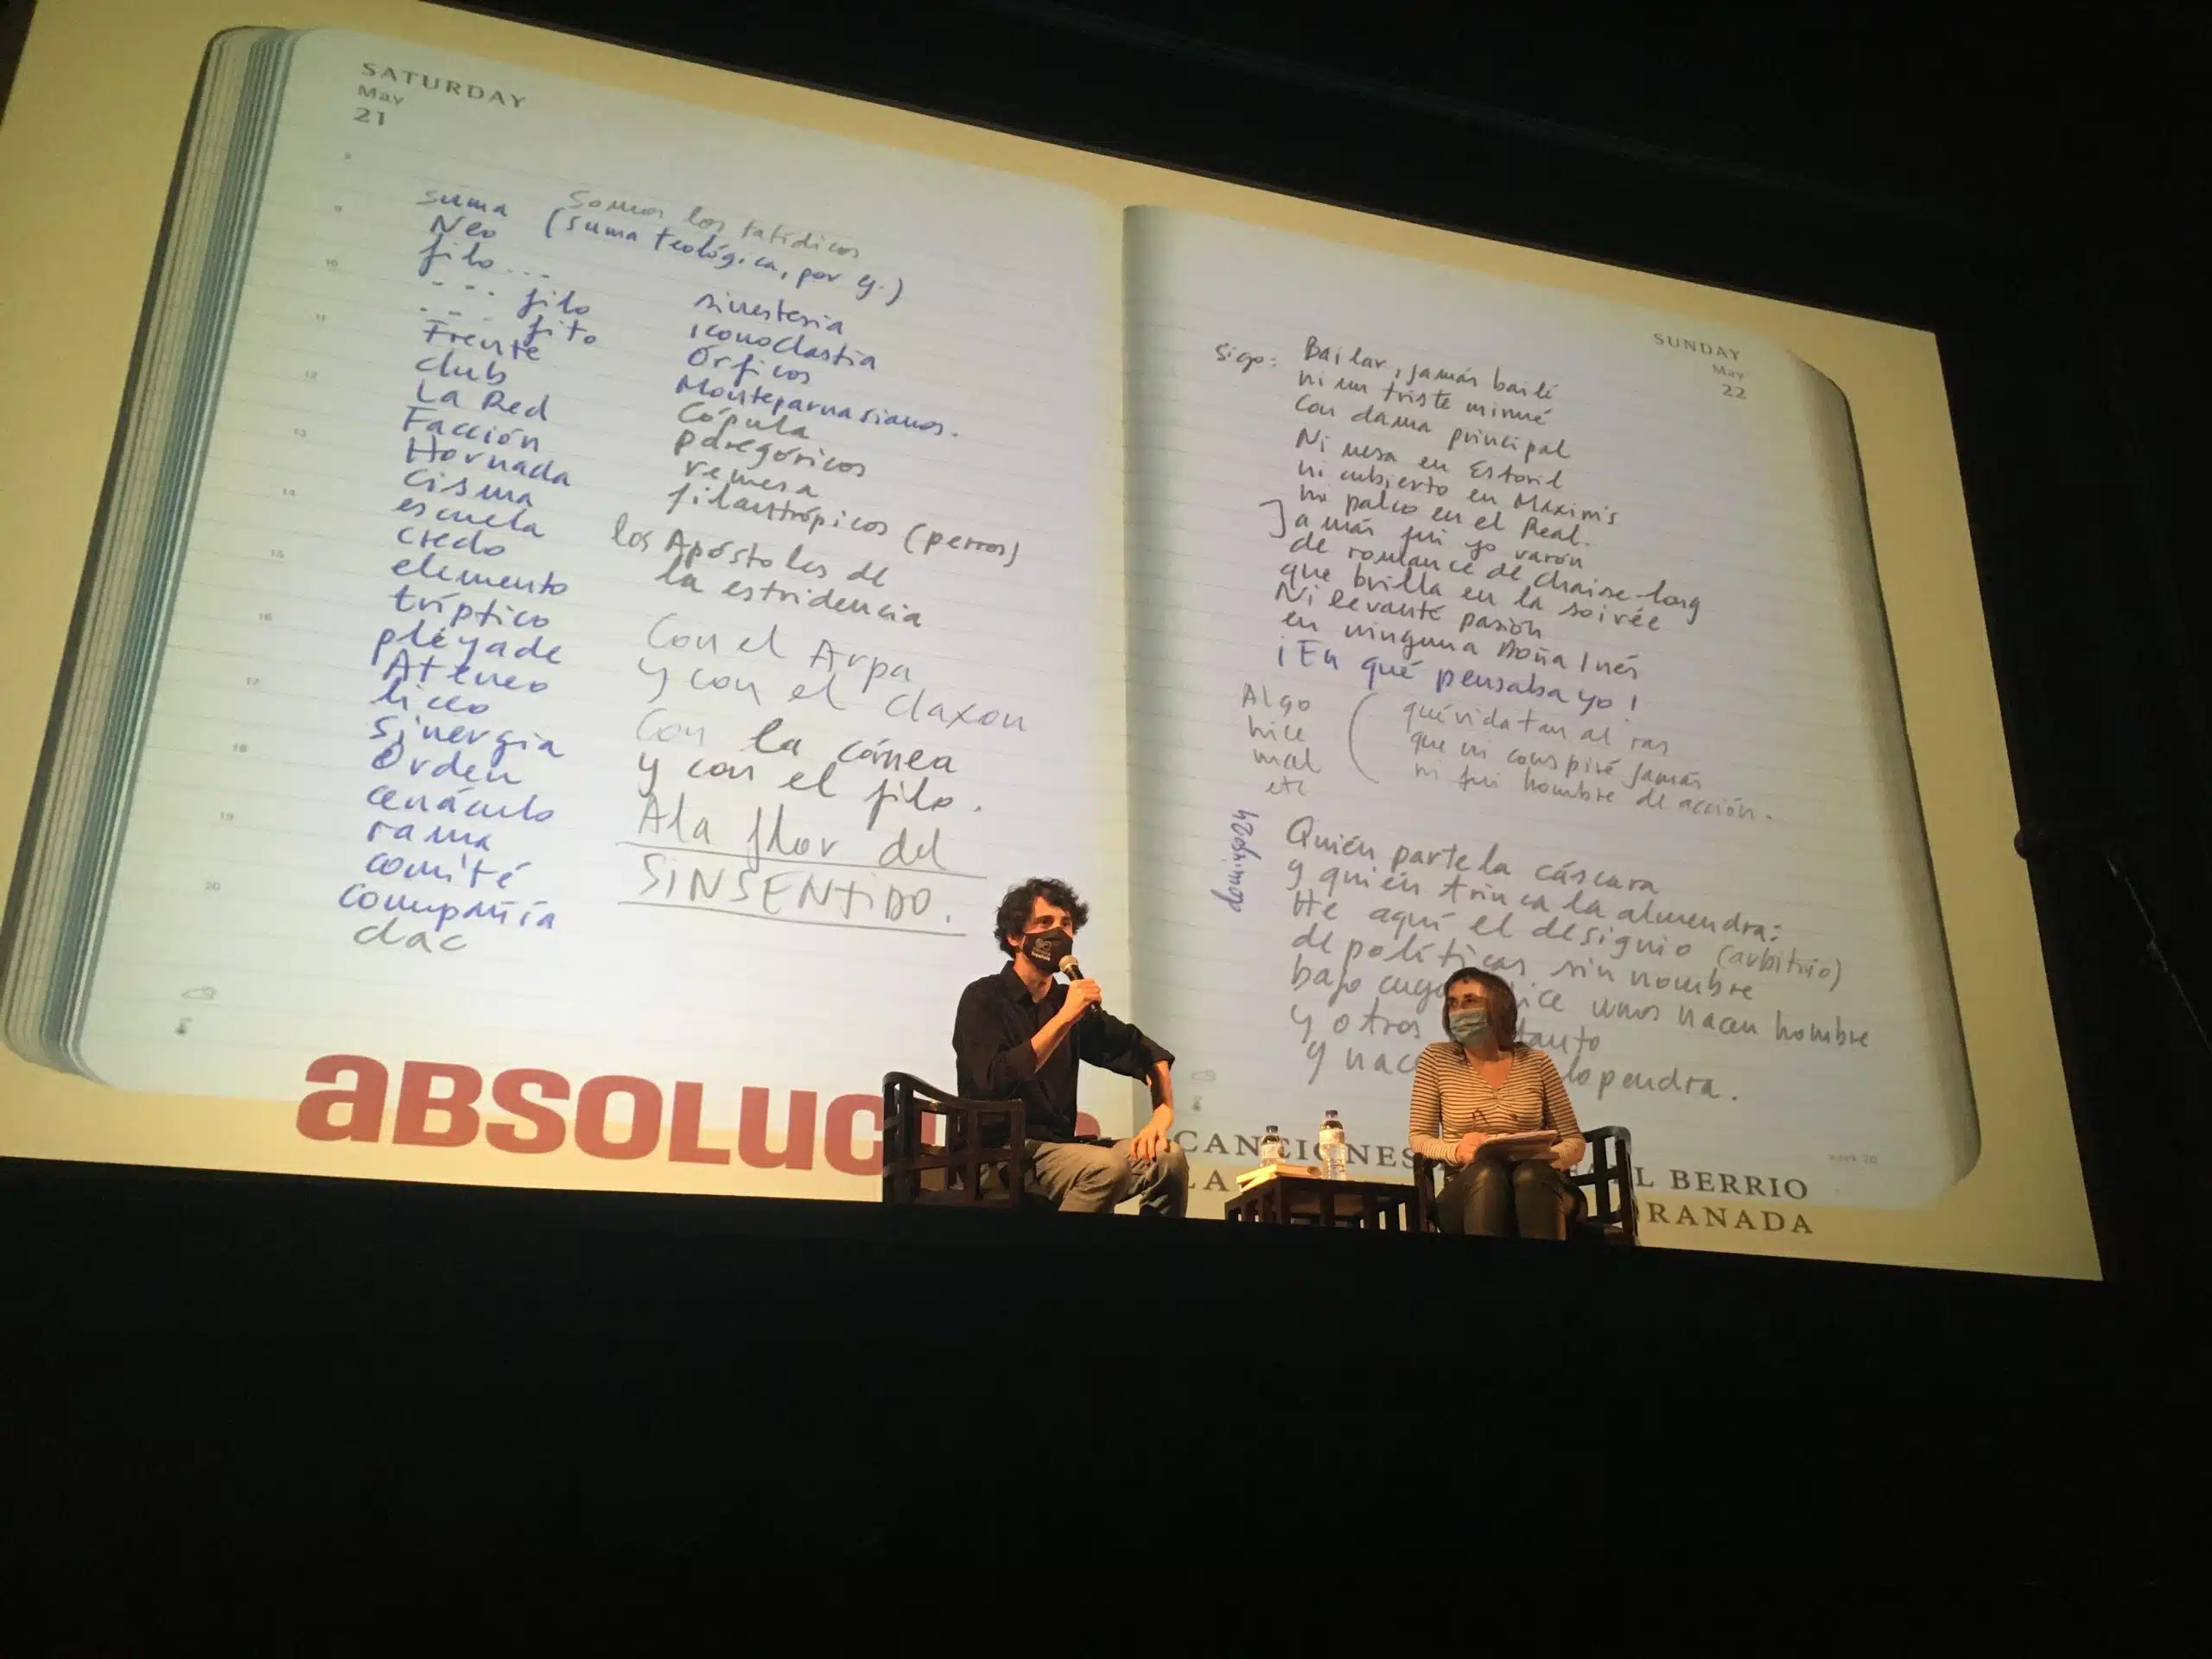 SATURDAY
May
21
Somos los fatídicos
suma (suma teológica, por ej.)
Neo
filo...
--- filo
--- fito
Frente
club
La Red
Facción
Hornada
cisma
escuela
credo
elemento
tríptico
pléyade
Ateneo
liceo
Sinergia
Orden
cenáculo
rama
comité
Compañía
clac
sinestesia
iconoclastia
Órficos
Monteparnasianos.
Cópula
paregóricos
remesa
filantrópicos (perros)
los Apóstoles de
la estridencia
Con el Arpa
y con el claxon
Con la cánea
y con el filo.
A la flor del
SINSENTIDO.
SUNDAY
May
22
Sigo: Bailar, jamás bailé
ni un triste minué
con dama principal
Ni mesa en Estoril
ni cubierto en Maxim's
ni palco en el Real.
Jamás fui yo varón
de romance de chaise-long
que brilla en la soirée
Ni levanté pasión
en ninguna Doña Inés
¡En qué pensaba yo!
Algo
hice
mal
etc
qué vida tan al ras
que ni conspiré jamás
ni fui hombre de acción.
domingo 24
Quién parte la cáscara
y quién trinca la almendra:
He aquí el designio (arbitrio)
de políticas sin nombre
bajo cuya ice unos nacen hombre
y otros tanto
y nac lopendra.
week 20
8
9
10
11
12
13
14
15
16
17
18
19
20
ABSOLUC
CANCIONES L BERRIO
LA RANADA